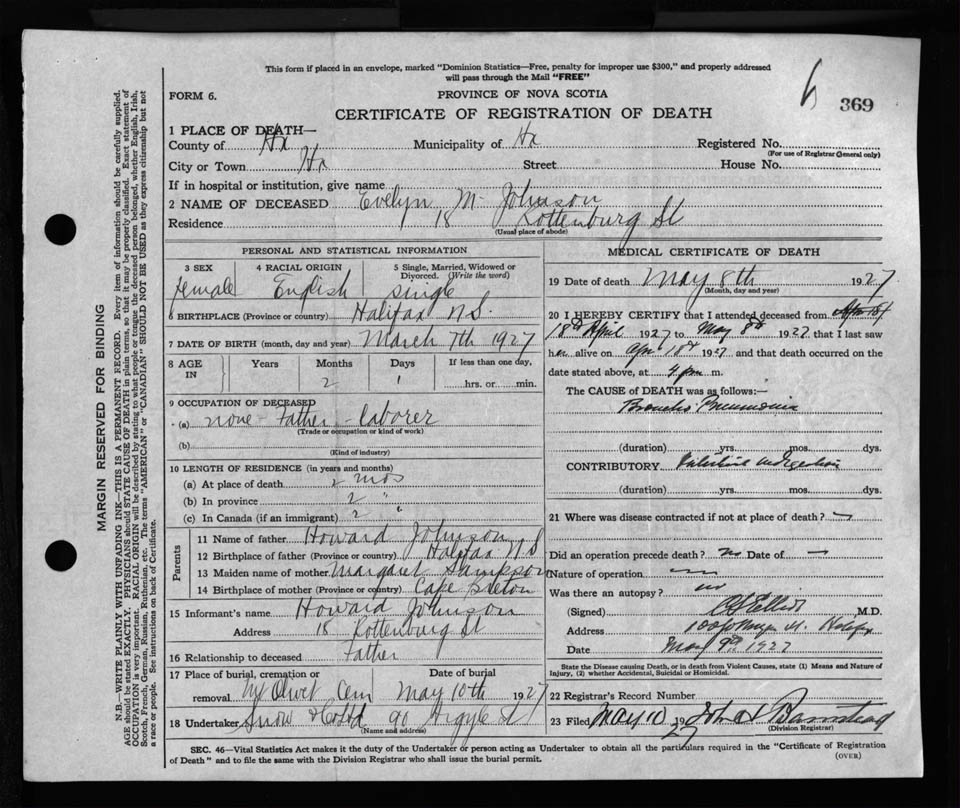 This form if placed in an envelope, marked "Dominion Statistics—Free, penalty for improper use $300," and properly addressed
will pass through the Mail "FREE"
FORM 6.
PROVINCE OF NOVA SCOTIA
6 369
CERTIFICATE OF REGISTRATION OF DEATH
1 PLACE OF DEATH—
County of Hx Municipality of Hx Registered No.
(For use of Registrar General only)
City or Town Hx Street House No.
If in hospital or institution, give name
2 NAME OF DECEASED Evelyn M. Johnson
Residence 18 Rottenburg St
(Usual place of abode)
PERSONAL AND STATISTICAL INFORMATION
3 SEX female
4 RACIAL ORIGIN English
5 Single, Married, Widowed or Divorced. (Write the word) single
6 BIRTHPLACE (Province or country) Halifax N.S.
7 DATE OF BIRTH (month, day and year) March 7th 1927
8 AGE IN Years Months 2 Days 1 If less than one day, hrs. or min.
9 OCCUPATION OF DECEASED
(a) none - Father - Laborer
(Trade or occupation or kind of work)
(b)
(Kind of industry)
10 LENGTH OF RESIDENCE (in years and months)
(a) At place of death 2 mos
(b) In province 2 "
(c) In Canada (if an immigrant) 2 "
Parents
11 Name of father Howard Johnson
12 Birthplace of father (Province or country) Halifax N S
13 Maiden name of mother Margaret Sampson
14 Birthplace of mother (Province or country) Cape Breton
15 Informant's name Howard Johnson
Address 18 Rottenburg St
16 Relationship to deceased Father
17 Place of burial, cremation or removal Mt Olivet Cem Date of burial May 10th 1927
18 Undertaker Snow & Co Ltd 90 Argyle St
(Name and address)
MEDICAL CERTIFICATE OF DEATH
19 Date of death May 8th 1927
(Month, day and year)
20 I HEREBY CERTIFY that I attended deceased from
18th April 1927 to May 8th 1927 that I last saw
her alive on Apr 18th 1927 and that death occurred on the
date stated above, at 4 pm m.
The CAUSE of DEATH was as follows:—
Broncho Pneumonia
(duration) yrs. mos. dys.
CONTRIBUTORY Intestinal indigestion
(duration) yrs. mos. dys.
21 Where was disease contracted if not at place of death? —
Did an operation precede death? no Date of —
Nature of operation —
Was there an autopsy? no
(Signed) M.D.
Address Halifax
Date May 9th 1927
State the Disease causing Death, or in death from Violent Causes, state (1) Means and Nature of
Injury, (2) whether Accidental, Suicidal or Homicidal.
22 Registrar's Record Number
23 Filed MAY 10 1927 John A Barnstead
(Division Registrar)
SEC. 46—Vital Statistics Act makes it the duty of the Undertaker or person acting as Undertaker to obtain all the particulars required in the "Certificate of Registration
of Death" and to file the same with the Division Registrar who shall issue the burial permit.
(OVER)
MARGIN RESERVED FOR BINDING
N.B.—WRITE PLAINLY WITH UNFADING INK—THIS IS A PERMANENT RECORD. Every item of information should be carefully supplied.
AGE should be stated EXACTLY. PHYSICIANS should STATE CAUSE OF DEATH in plain terms, so that it may be properly classified. Exact statement of
OCCUPATION is very important. RACIAL ORIGIN will be described by stating to what people or tongue the deceased person belonged, whether English, Irish,
Scotch, French, German, Russian, Ruthenian, etc. The terms "AMERICAN" or "CANADIAN" SHOULD NOT BE USED as they express citizenship but not
a race or people. See instructions on back of Certificate.